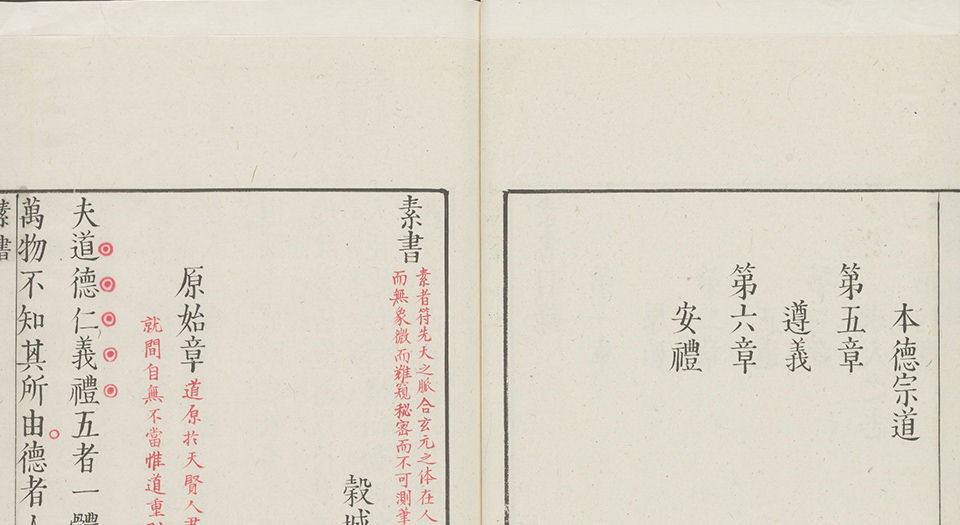 本德宗道
第五章
遵義
第六章
安禮
素書
素者符先天之脈合玄元之体在人
而無象微而難窺秘密而不可測筆
榖城
原始章
道原於天賢人君
就間自無不當惟道重
夫道德仁義禮五者一體
萬物不知其所由德者人
素書